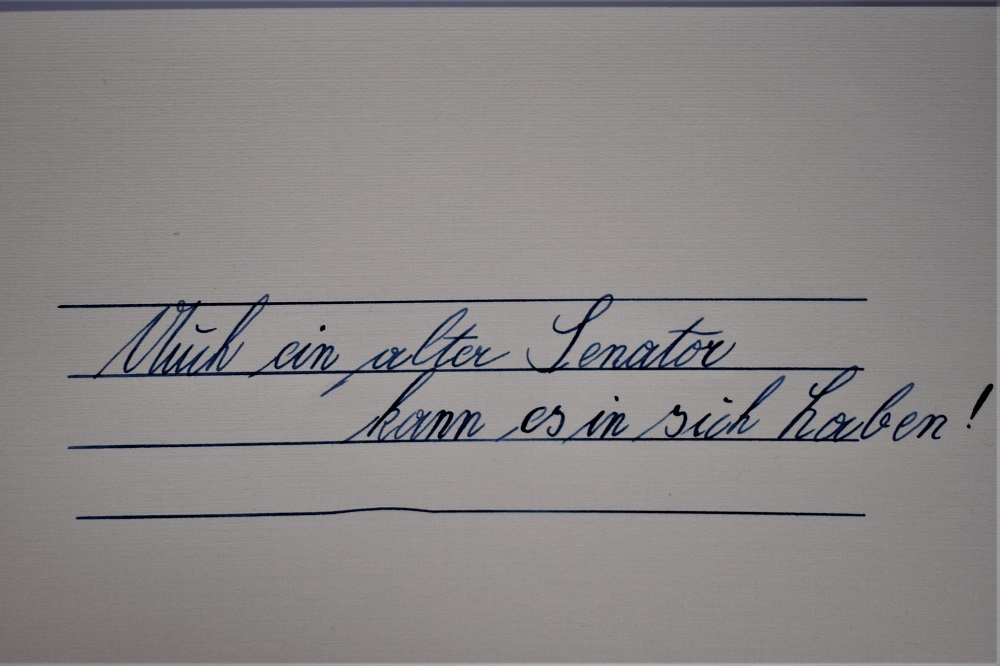 Auch ein alter Senator
kann es in sich haben!